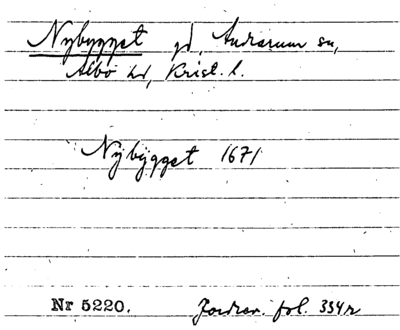 Nybygget gd, Andrarum sn,
Albo hd, Krist. l.
Nÿbÿgget 1671
Nr 5220. Jordrev. fol. 334r